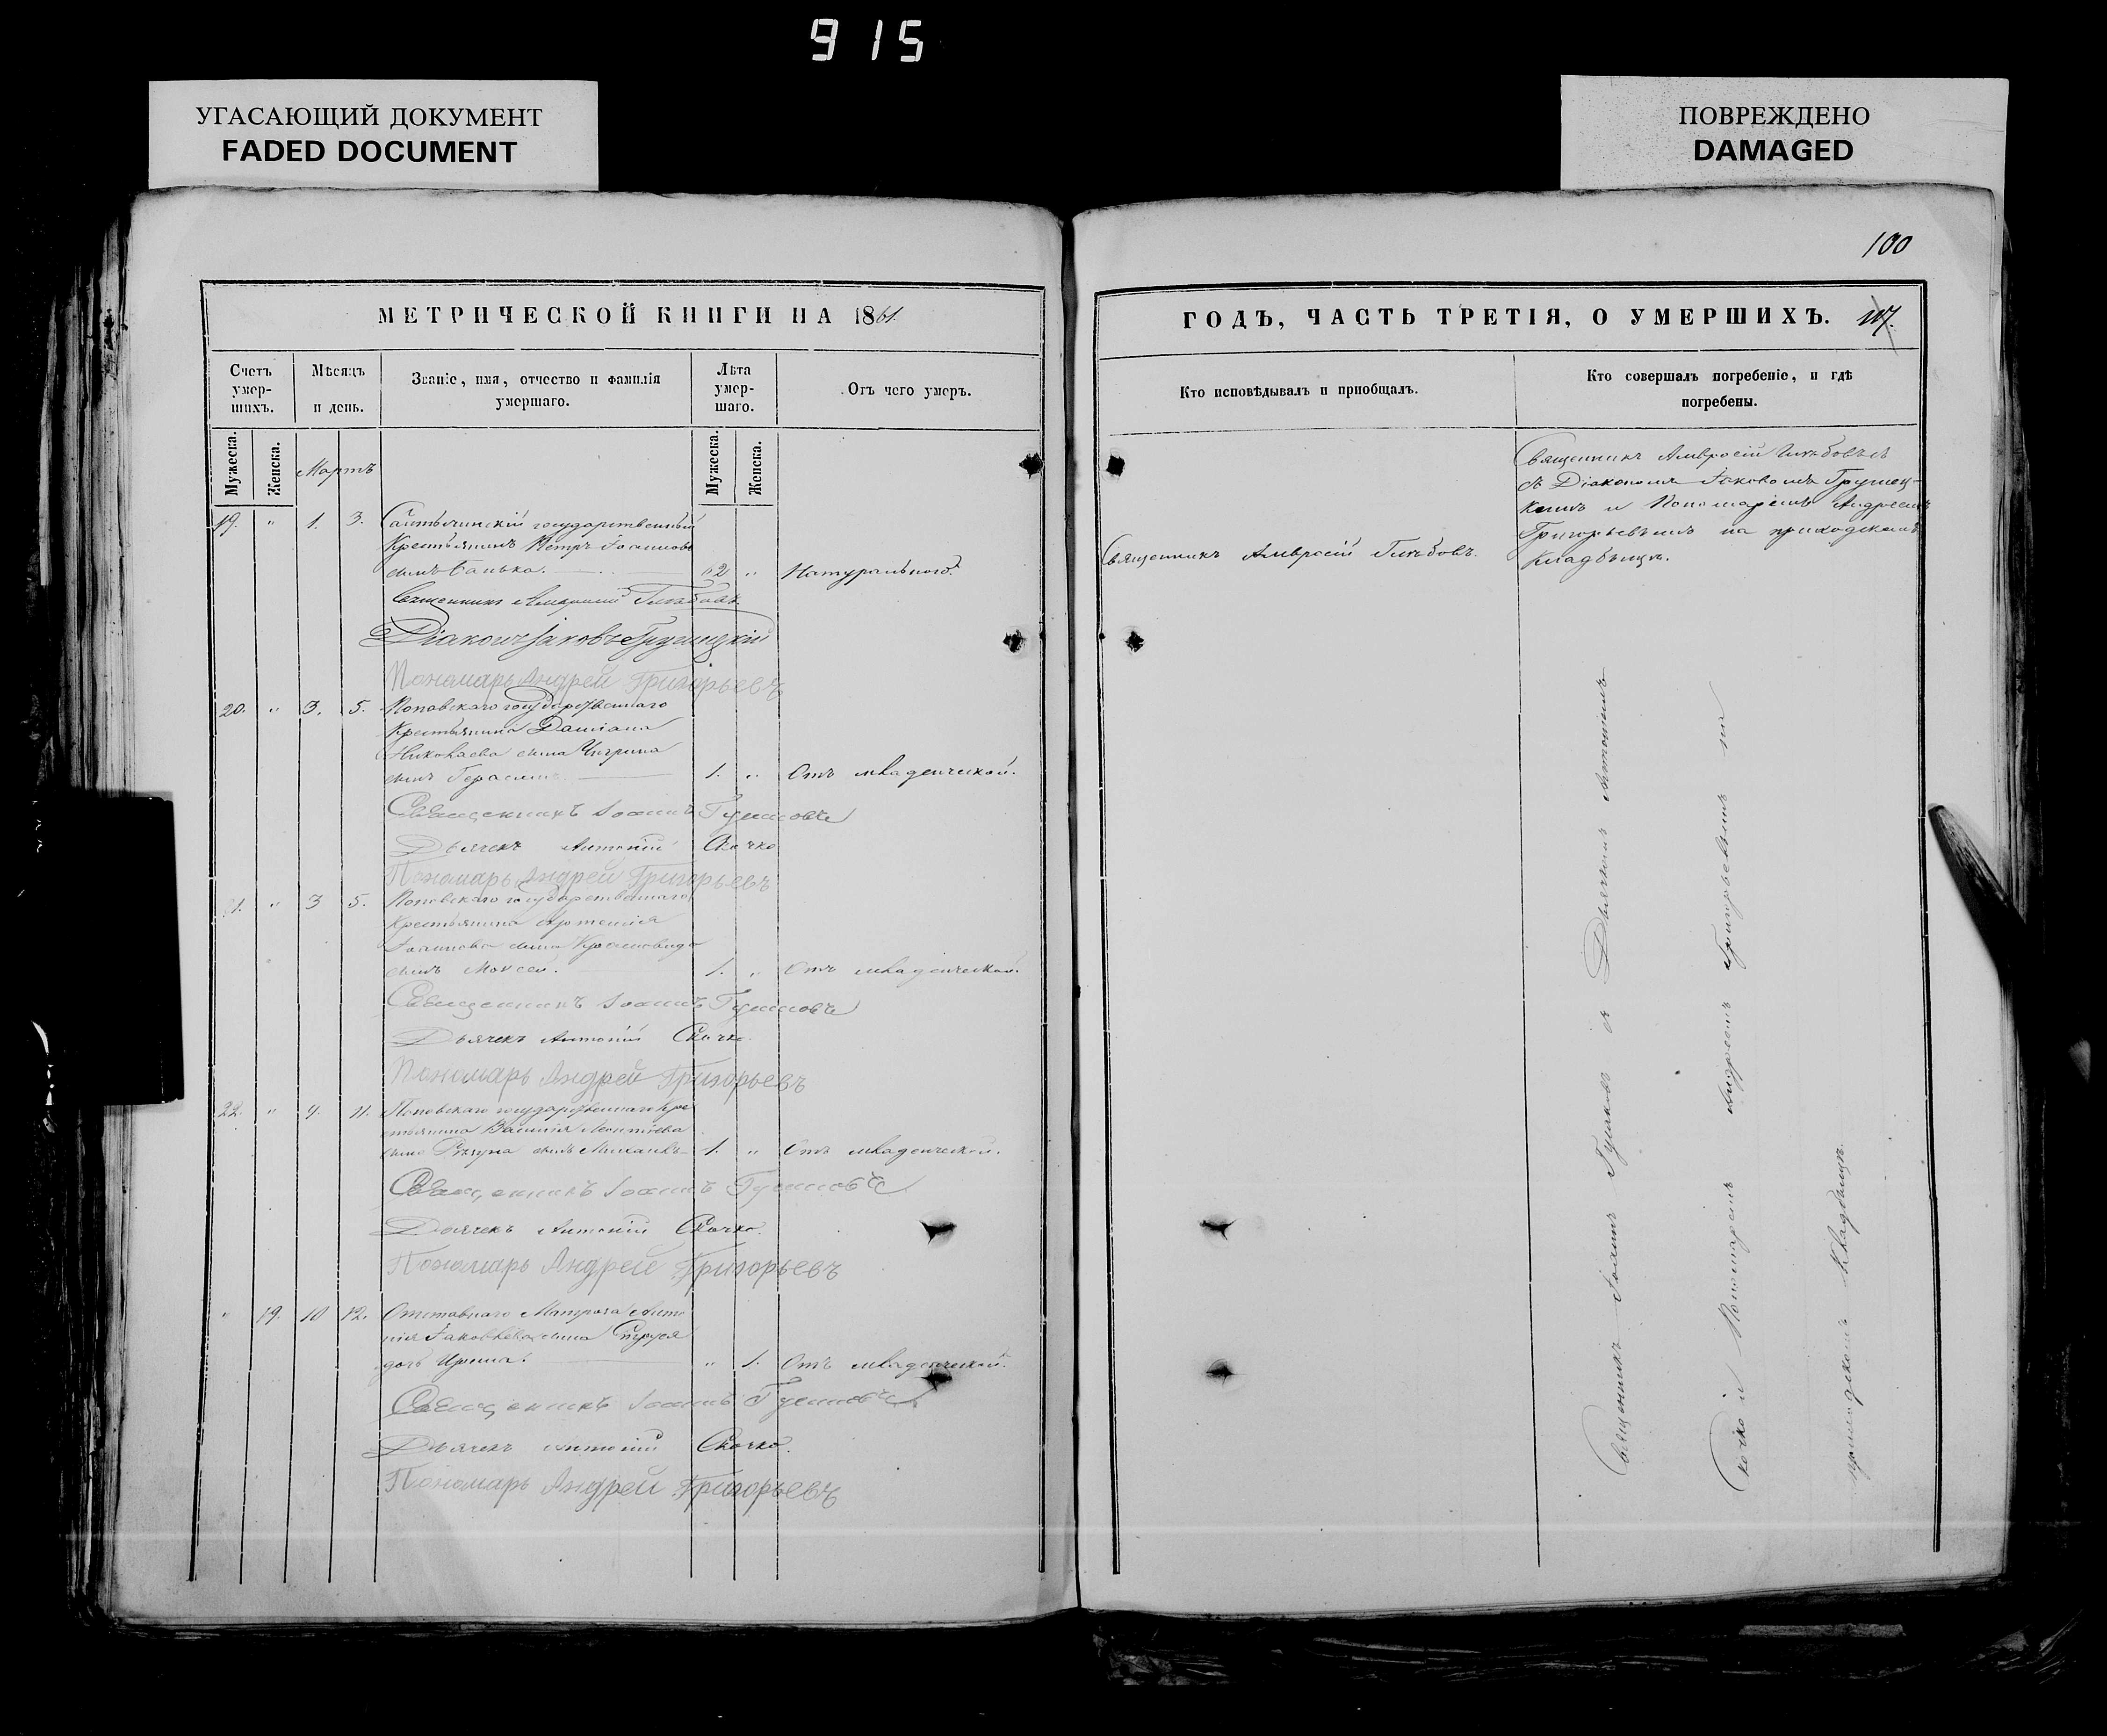 915
УГАСАЮЩИЙ ДОКУМЕНТ
FADED DOCUMENT
ПОВРЕЖДЕНО
DAMAGED
100
МЕТРИЧЕСКОЙ КНИГИ НА 1861.
Счетъ умер-шихъ.
Мѣсяцъ и день.
Званіе, имя, отчество и фамилія умершаго.
Лѣта умер-шаго.
Отъ чего умеръ.
Мужеска.
Женска.
Мартъ
Мужеска.
Женска.
19. " 1. 3. государственный
Крестьянинъ Петръ Іоанновъ
сынъ Санька. 62 " Натурально.
Священникъ Амвросій Глѣбовъ.
Діаконъ Іаковъ Грушецкій
Пономарь Андрей Григорьевъ
20. " 3. 5. Поповскаго государственнаго
Крестьянина Даміана
Николаева сына Чигрина
сынъ Герасимъ. 1. " Отъ младенческой.
Священникъ Іоаннъ
Дьячекъ Антоній Скочко
Пономарь Андрей Григорьевъ
21. " 3 5. Поповскаго государственнаго
Крестьянина Артемія
Іоаннова сына
сынъ Моисей. 1. " Отъ младенческой.
Священникъ Іоаннъ
Дьячекъ Антоній Скочко.
Пономарь Андрей Григорьевъ
22. " 9. 11. Поповскаго государственнаго Кре
стьянина Василія Леонтіева
сына сынъ Михаилъ 1. " Отъ младенческой.
Священникъ Іоаннъ
Дьячекъ Антоній Скочко.
Пономарь Андрей Григорьевъ
" 19. 10 12. Отставнаго Матроса Анто
нія Іаковлева сына
дочь Ирина. " 1. Отъ младенческой.
Священникъ Іоаннъ
Дьячекъ Антоній Скочко.
Пономарь Андрей Григорьевъ
ГОДЪ, ЧАСТЬ ТРЕТІЯ, О УМЕРШИХЪ. 117.
Кто исповѣдывалъ и приобщалъ.
Кто совершалъ погребеніе, и гдѣ погребены.
Священникъ Амвросій Глѣбовъ.
Священникъ Амвросій Глѣбовъ
съ Діакономъ Іаковомъ Грушец-
кимъ и Пономаремъ Андреемъ
Григорьевымъ на приходскомъ
Кладбищѣ.
Священникъ Іоаннъ съ Дьячкомъ Антоніемъ
Скочко и Пономаремъ Андреемъ Григорьевымъ на
приходскомъ Кладбищѣ.